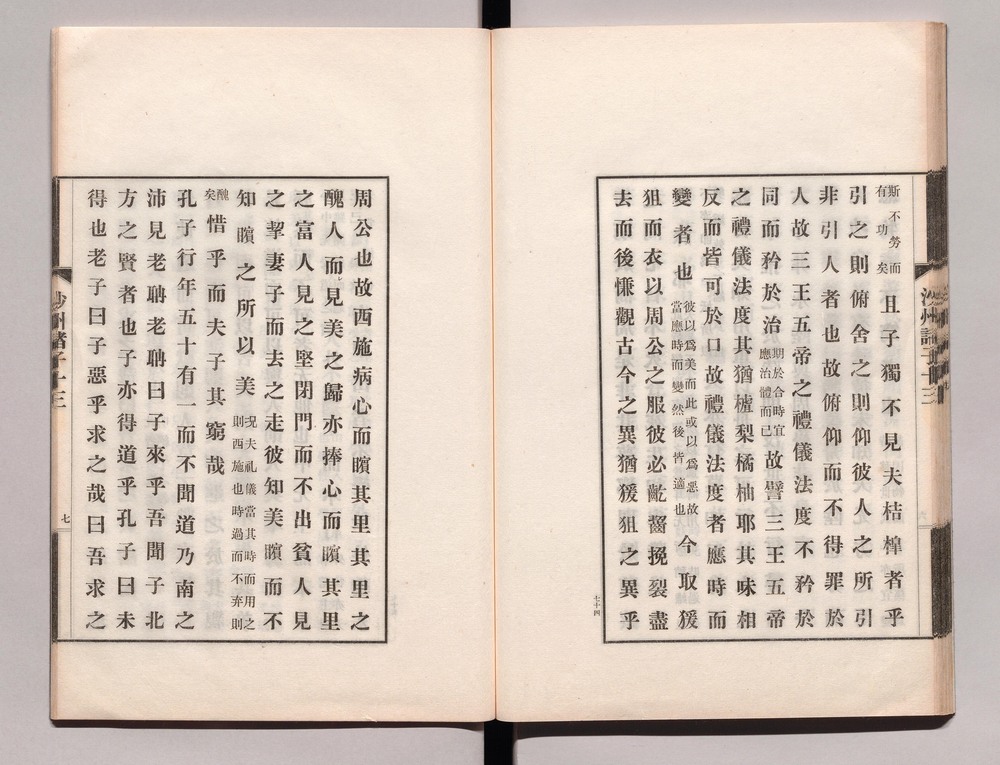 斯不勞而有功矣且子獨不見夫桔槹者乎
引之則俯舍之則仰彼人之所引
非引人者也故俯仰而不得罪於
人故三王五帝之禮儀法度不矜於
同而矜於治期於合時宜應治體而已故譬三王五帝
之禮儀法度其猶樝梨橘柚耶其味相
反而皆可於口故禮儀法度者應時而
變者也彼以爲美而此或以爲惡故當應時而變然後皆適也今取猨
狙而衣以周公之服彼必齕齧挽裂盡
去而後慊觀古今之異猶猨狙之異乎
七十四
周公也故西施病心而矉其里其里之
醜人而見美之歸亦捧心而矉其里
之富人見之堅閉門而不出貧人見
之挈妻子而去之走彼知美矉而不
知矉之所以美況夫礼儀當其時而用之則西施也時過而不弃則
醜矣惜乎而夫子其窮哉
孔子行年五十有一而不聞道乃南之
沛見老聃老聃曰子來乎吾聞子北
方之賢者也子亦得道乎孔子曰未
得也老子曰子惡乎求之哉曰吾求之
沙州諸子十三
七